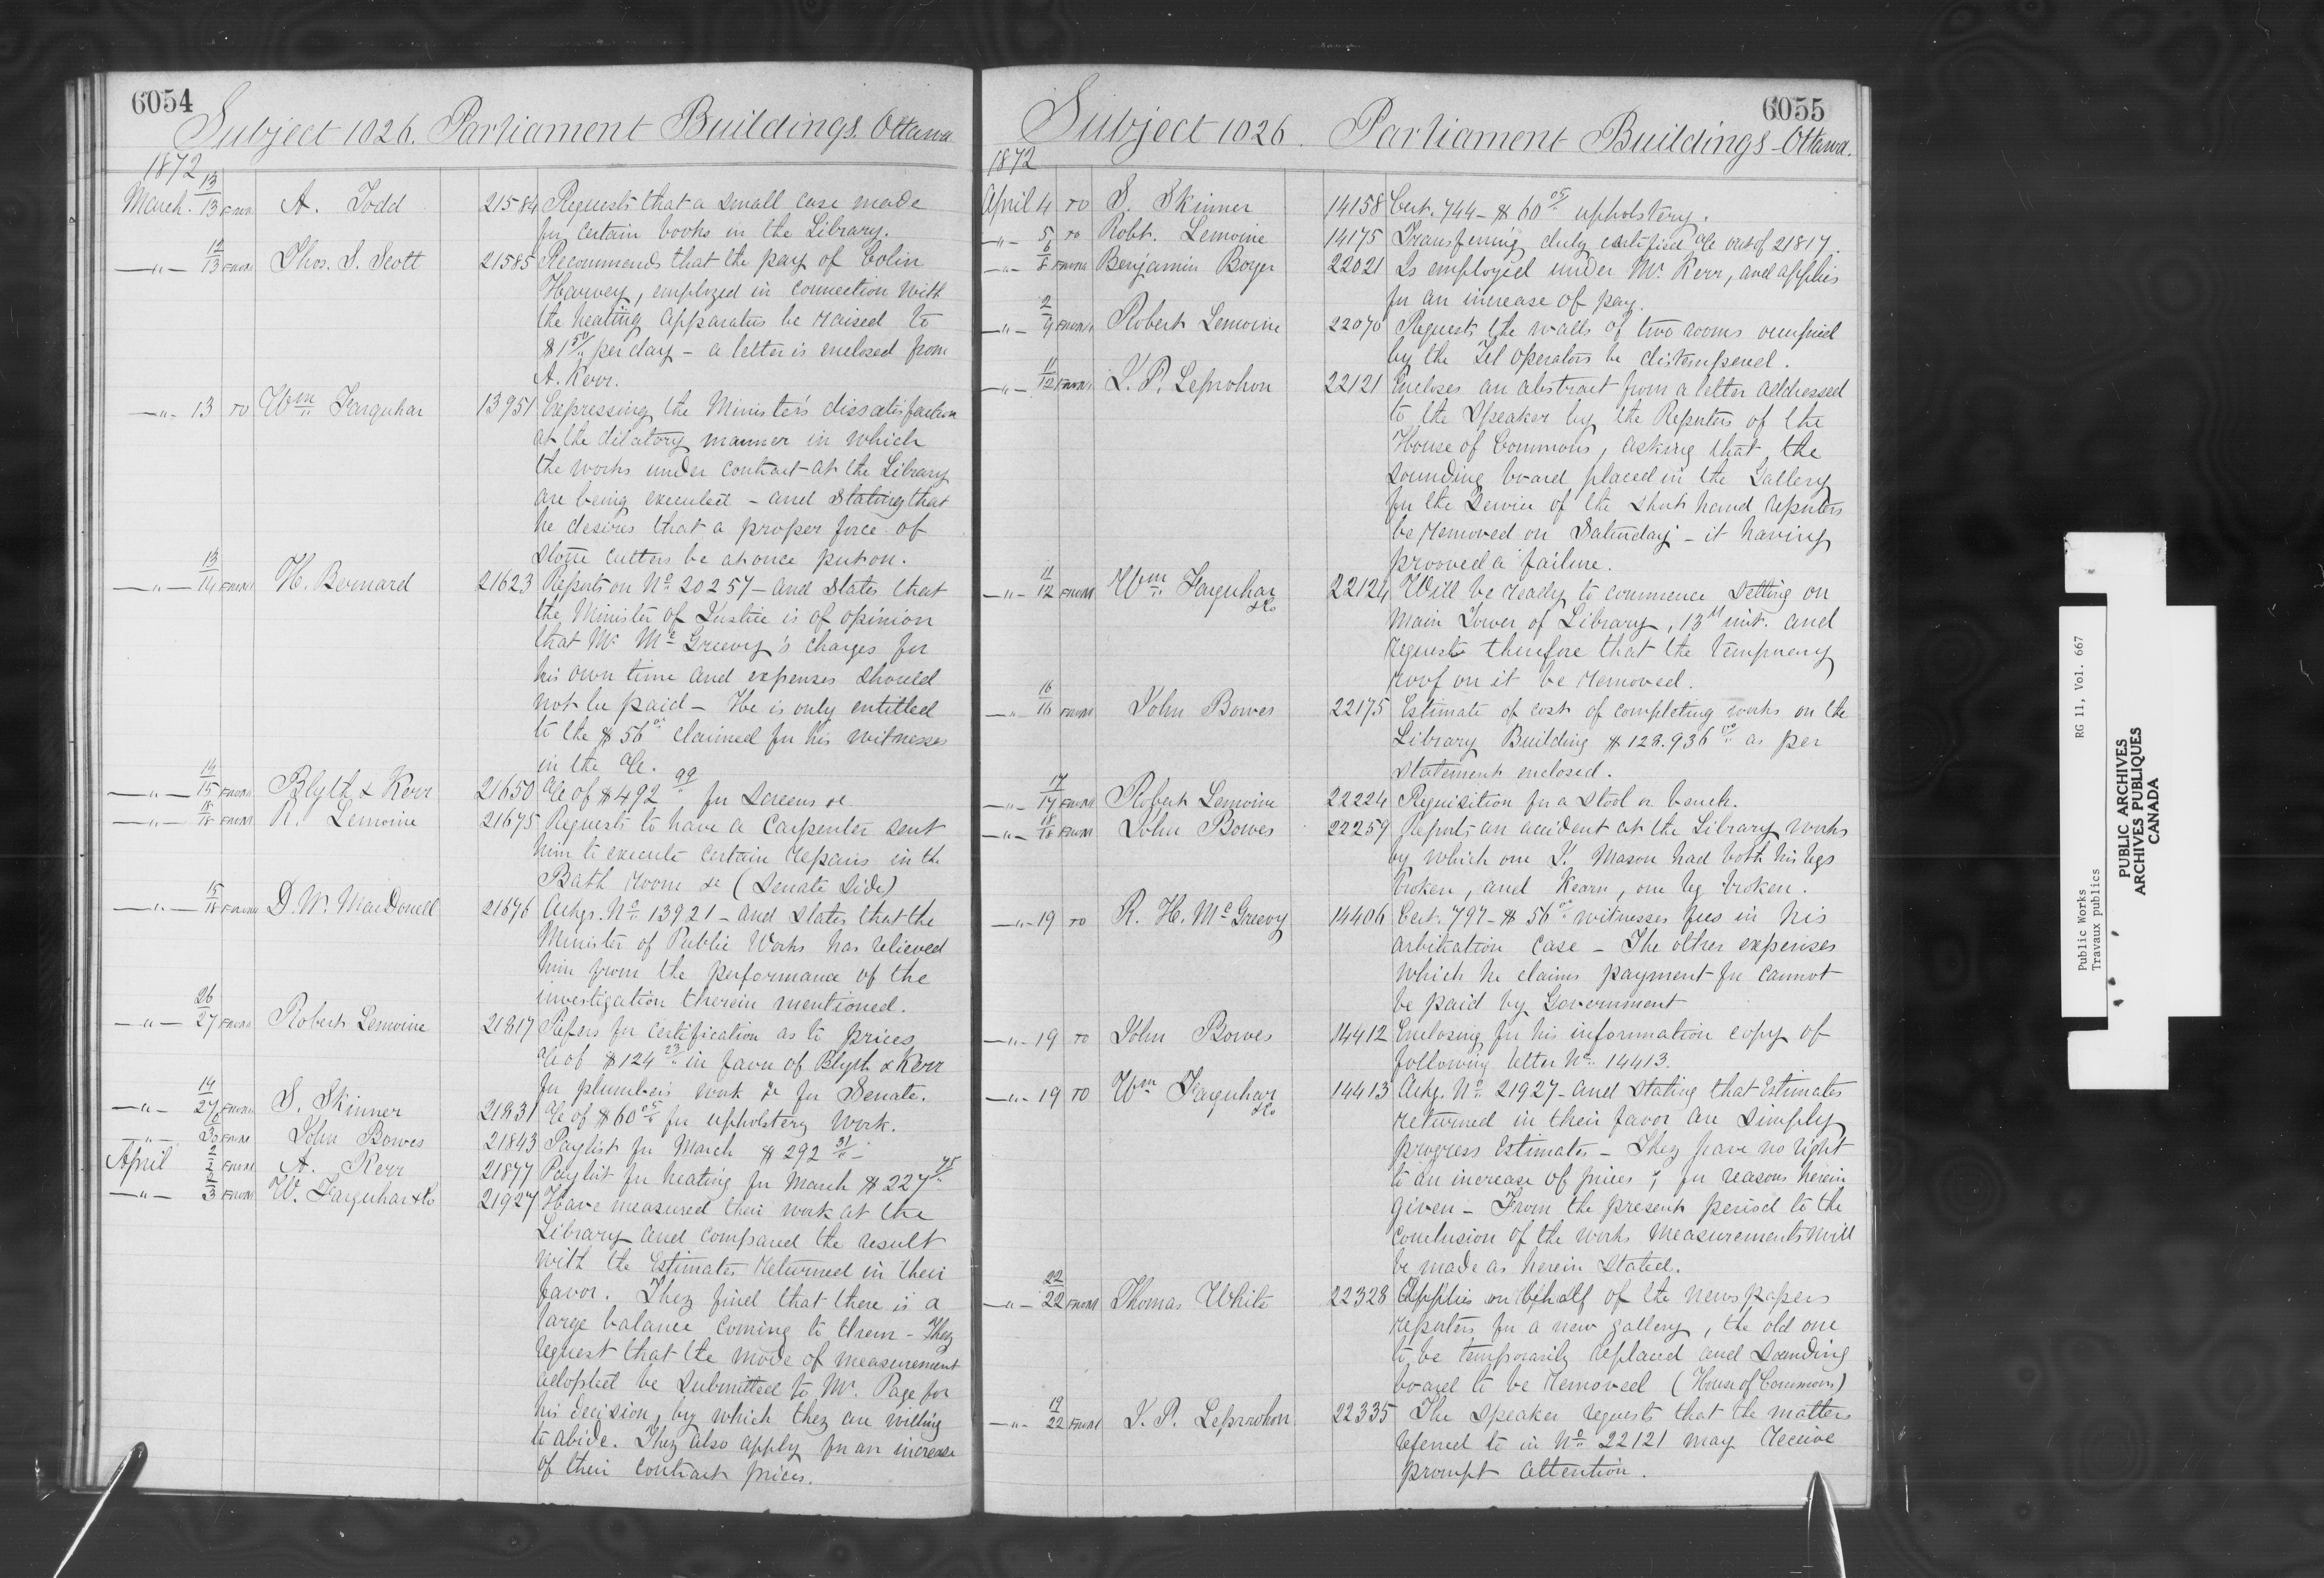 6054
Subject 1026. Parliament Buildings. Ottawa
1872
March 13/13 FROM A. Todd 21584 Requests that a small case made
for certain books in the Library.
—"— 12/13 FROM Thos. S. Scott 21585 Recommends that the pay of Colin
Harvey, employed in connection with
the heating apparatus be raised to
$1 50/" per day - a letter is enclosed from
A. Kerr.
—"— 13 TO Wm Farquhar 13951 Expressing the Minister's dissatisfaction
at the dilatory manner in which
the works under contract at the Library
are being executed - and stating that
he desires that a proper force of
stone cutters be at once put on.
—"— 13/14 FROM H. Bernard 21623 Reports on No 20257 - and states that
the Minister of Justice is of opinion
that Mr McGreevy's charges for
his own time and expenses should
not be paid - He is only entitled
to the $56 claimed for his witnesses
in the a/c.
—"— 14/15 FROM Blyth & Kerr 21650 a/c of $492 99/" for screens &c
—"— 18/18 FROM R. Lemoine 21675 Requests to have a Carpenter sent
him to execute certain repairs in the
Bath room &c (Senate side)
—"— 15/18 FROM D. W. MacDonell 21676 Ackgs. No 13921 - and states that the
Minister of Public Works has relieved
him from the performance of the
investigation therein mentioned.
—"— 26/27 FROM Robert Lemoine 21817 Refers for certification as to prices
a/c of $124 23/" in favor of Blyth & Kerr
for plumbers work &c for Senate.
—"— 14/27 FROM S. Skinner 21831 a/c of $60 for upholstery work.
—"— 30 FROM John Bowes 21843 Paylist for March $292 31/"
April 2/2 FROM A. Kerr 21877 Paylist for heating for March $227 75/"
—"— 3 FROM W. Farquhar & Co 21927 Have measured their work at the
Library and compared the result
with the Estimates returned in their
favor. They find that there is a
large balance coming to them - They
request that the mode of measurement
adopted be submitted to Mr. Page for
his decision, by which they are willing
to abide. They also apply for an increase
of their contract prices.
6055
Subject 1026. Parliament Buildings - Ottawa.
1872
April 4 TO S. Skinner 14158 Cert. 744 - $60 upholstery.
—"— 5 TO Robt. Lemoine 14175 Transferring duly certified a/c out of 21817.
—"— 6/8 FROM Benjamin Boyer 22021 Is employed under Mr. Kerr, and applies
for an increase of pay.
—"— 2/9 FROM Robert Lemoine 22070 Requests the walls of two rooms occupied
by the Tel operators be distempered.
—"— 11/12 FROM J. P. Leprohon 22121 Encloses an abstract from a letter addressed
to the Speaker by the Reporters of the
House of Commons, asking that the
sounding board placed in the Gallery
for the service of the short hand reporters
be removed on Saturday - it having
prooved a failure.
—"— 11/12 FROM Wm Farquhar & Co 22124 Will be ready to commence setting on
main tower of Library, 13th inst. and
request therefore that the temporary
roof on it be removed.
—"— 16/16 FROM John Bowes 22175 Estimate of cost of completing works on the
Library Building $128.936 as per
statement enclosed.
—"— 17/17 FROM Robert Lemoine 22224 Requisition for a stool or bench.
—"— 18/18 FROM John Bowes 22259 Reports an accident at the Library works
by which one J. Mason had both his legs
broken, and Kearn, one leg broken.
—"— 19 TO R. H. McGreevy 14406 Cert. 797 - $56 witnesses fees in his
arbitration case - The other expenses
which he claims payment for cannot
be paid by Government
—"— 19 TO John Bowes 14412 Enclosing for his information copy of
following letter No 14413.
—"— 19 TO Wm Farquhar & Co 14413 Ackg. No 21927 - and stating that Estimates
returned in their favor are simply
progress Estimates - They have no right
to an increase of prices; for reasons herein
given - From the present period to the
conclusion of the works measurements will
be made as herein stated.
—"— 22/22 FROM Thomas White 22328 Applies on behalf of the newspapers
reporters for a new gallery, the old one
to be temporarily replaced and sounding
board to be removed (House of Commons)
—"— 19/22 FROM J. P. Leprohon 22335 The Speaker requests that the matters
referred to in No 22121 may receive
prompt attention.
Public Works RG 11, Vol. 667
Travaux publics
PUBLIC ARCHIVES
ARCHIVES PUBLIQUES
CANADA